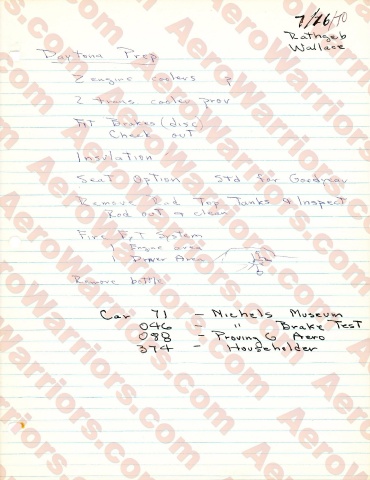 7/26/70
Rathgeb
Wallace
Daytona Prep
2 engine coolers
2 trans. cooler prov
Brakes (disc)
Check out
Insulation
Seat Option Std for Goodyear
Remove Rad Top Tanks & Inspect
Rod out & clean
Fire System
1 Engine area
1 Driver Area
Remove bottle
Car 71 - Nichels Museum
046 - " Brake Test
098 - Proving G Aero
374 - Householder
AeroWarriors.com